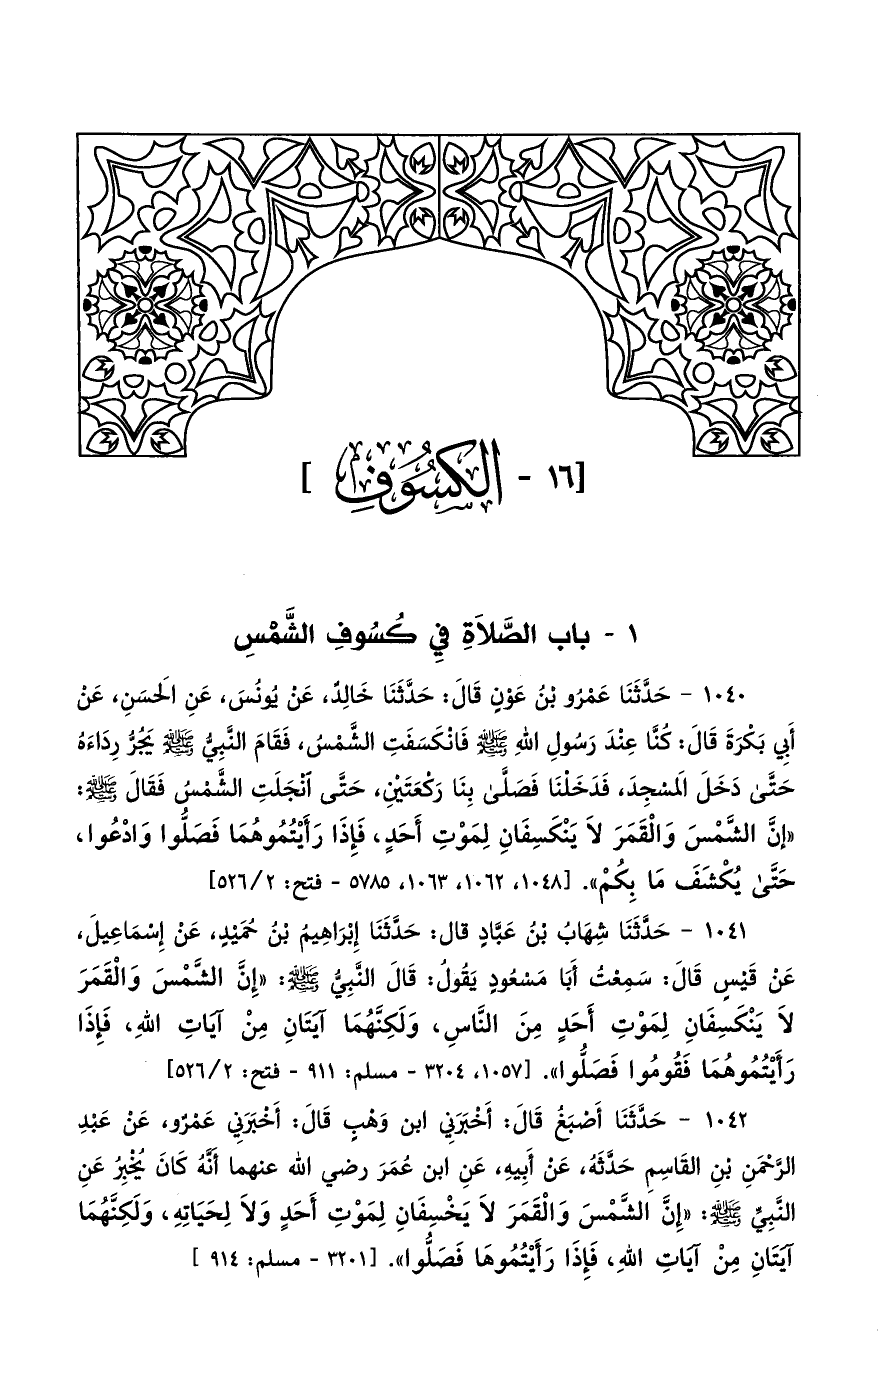 [١٦ - الكُسُوفِ]
١ - باب الصَّلاَةِ فِي كُسُوفِ الشَّمْسِ
١٠٤٠ - حَدَّثَنَا عَمْرُو بْنُ عَوْنٍ قَالَ: حَدَّثَنَا خَالِدٌ، عَنْ يُونُسَ، عَنِ الحَسَنِ، عَنْ
أَبِي بَكْرَةَ قَالَ: كُنَّا عِنْدَ رَسُولِ اللهِ ﷺ فَانْكَسَفَتِ الشَّمْسُ، فَقَامَ النَّبِيُّ ﷺ يَجُرُّ رِدَاءَهُ
حَتَّىٰ دَخَلَ المَسْجِدَ، فَدَخَلْنَا فَصَلَّىٰ بِنَا رَكْعَتَيْنِ، حَتَّى ٱنْجَلَتِ الشَّمْسُ فَقَالَ ﷺ:
«إِنَّ الشَّمْسَ وَالْقَمَرَ لاَ يَنْكَسِفَانِ لِمَوْتِ أَحَدٍ، فَإِذَا رَأَيْتُمُوهُمَا فَصَلُّوا وَادْعُوا،
حَتَّىٰ يُكْشَفَ مَا بِكُمْ». [١٠٤٨، ١٠٦٢، ١٠٦٣، ٥٧٨٥ - فتح: ٢/ ٥٢٦]
١٠٤١ - حَدَّثَنَا شِهَابُ بْنُ عَبَّادٍ قال: حَدَّثَنَا إِبْرَاهِيمُ بْنُ حُمَيْدٍ، عَنْ إِسْمَاعِيلَ،
عَنْ قَيْسٍ قَالَ: سَمِعْتُ أَبَا مَسْعُودٍ يَقُولُ: قَالَ النَّبِيُّ ﷺ: «إِنَّ الشَّمْسَ وَالْقَمَرَ
لاَ يَنْكَسِفَانِ لِمَوْتِ أَحَدٍ مِنَ النَّاسِ، وَلَكِنَّهُمَا آيَتَانِ مِنْ آيَاتِ اللهِ، فَإِذَا
رَأَيْتُمُوهُمَا فَقُومُوا فَصَلُّوا». [١٠٥٧، ٣٢٠٤ - مسلم: ٩١١ - فتح: ٢/ ٥٢٦]
١٠٤٢ - حَدَّثَنَا أَصْبَغُ قَالَ: أَخْبَرَنِي ابن وَهْبٍ قَالَ: أَخْبَرَنِي عَمْرٌو، عَنْ عَبْدِ
الرَّحْمَنِ بْنِ القَاسِمِ حَدَّثَهُ، عَنْ أَبِيهِ، عَنِ ابن عُمَرَ رضي الله عنهما أَنَّهُ كَانَ يُخْبِرُ عَنِ
النَّبِيِّ ﷺ: «إِنَّ الشَّمْسَ وَالْقَمَرَ لاَ يَخْسِفَانِ لِمَوْتِ أَحَدٍ وَلاَ لِحَيَاتِهِ، وَلَكِنَّهُمَا
آيَتَانِ مِنْ آيَاتِ اللهِ، فَإِذَا رَأَيْتُمُوهَا فَصَلُّوا». [٣٢٠١ - مسلم: ٩١٤ ]